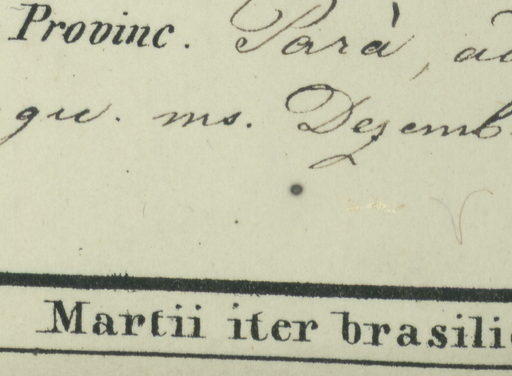 Provinc. Parà, ad
gu. ms. Dezemb
Martii iter brasili